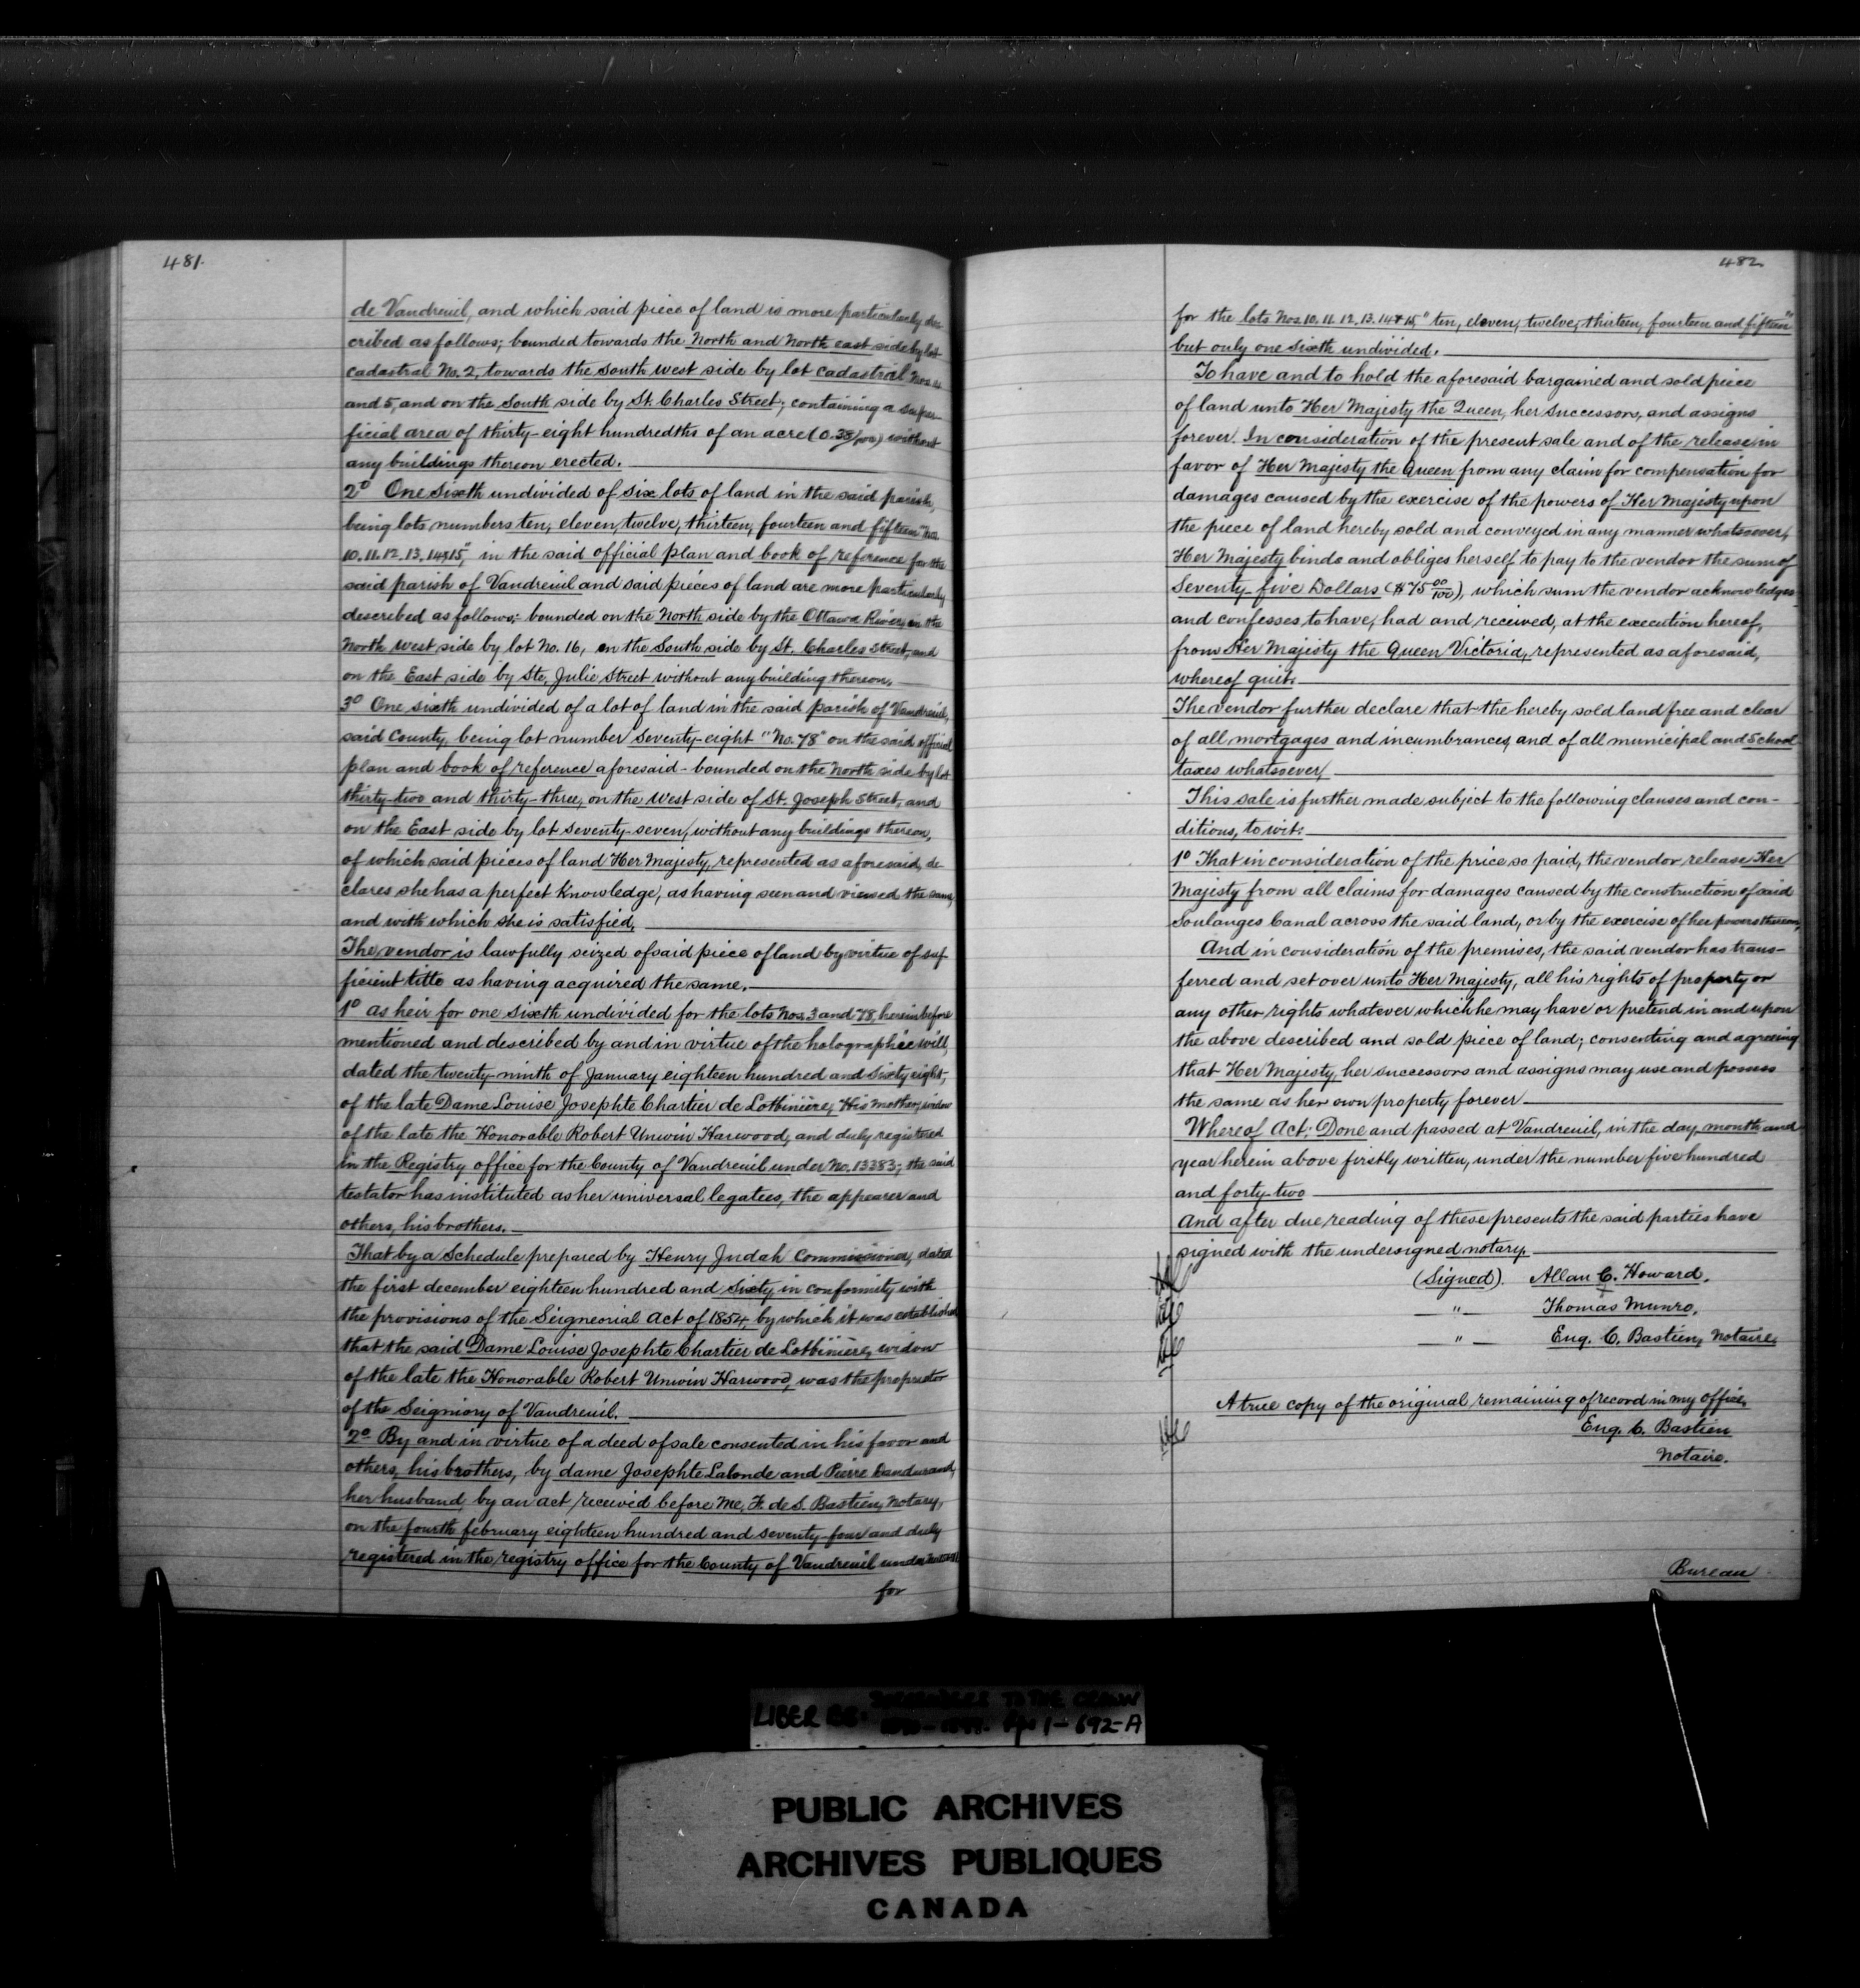 481.
de Vaudreuil, and which said piece of land is more particularly des-
cribed as follows; bounded towards the North and North east side by lot
cadastral No. 2, towards the South west side by lot cadastral Nos.
and 5, and on the South side by St. Charles Street; containing a super-
ficial area of thirty-eight hundredths of an acre (0.38/100) without
any buildings thereon erected.
2º One Sixth undivided of six lots of land in the said parish,
being lots numbers ten, eleven, twelve, thirteen, fourteen and fifteen "Nos.
10. 11. 12. 13. 14 & 15", in the said official plan and book of reference for the
said parish of Vaudreuil and said pieces of land are more particularly
described as follows; bounded on the North side by the Ottawa River, on the
North west side by lot No. 16, on the South side by St. Charles Street, and
on the East side by Ste. Julie Street without any building thereon.
3º One sixth undivided of a lot of land in the said parish of Vaudreuil,
said County, being lot number Seventy-eight "No. 78" on the said official
plan and book of reference aforesaid - bounded on the North side by lot
thirty-two and thirty-three, on the West side of St. Joseph Street, and
on the East side by lot Seventy-seven, without any buildings thereon,
of which said pieces of land Her Majesty, represented as aforesaid, de-
clares she has a perfect knowledge, as having seen and viewed the same,
and with which she is satisfied,
The vendor is lawfully seized of said piece of land by virtue of suf-
ficient title as having acquired the same.
1º As heir for one Sixth undivided for the lots Nos. 3 and 78, hereinbefore
mentioned and described by and in virtue of the holographic will,
dated the twenty-ninth of January eighteen hundred and Sixty eight,
of the late Dame Louise Josephte Chartier de Lotbinière, His Mother, widow
of the late the Honorable Robert Unwin Harwood, and duly registered
in the Registry office for the County of Vaudreuil under No. 13383; the said
testator has instituted as her universal legatees, the appearer and
others, his brothers.
That by a Schedule prepared by Henry Judah Commissioner, dated
the first december eighteen hundred and Sixty in conformity with
the provisions of the Seigneorial Act of 1854, by which it was established
that the said Dame Louise Josephte Chartier de Lotbinière, widow
of the late the Honorable Robert Unwin Harwood, was the proprietor
of the Seigniory of Vaudreuil.
2º By and in virtue of a deed of sale consented in his favor and
others, his brothers, by dame Josephte Lalonde and Pierre Dandurand,
her husband, by an act received before Me, F. de S. Bastien, Notary,
on the fourth february eighteen hundred and seventy-four and duly
registered in the registry office for the County of Vaudreuil under
for
482
for the lots Nos. 10. 11. 12. 13. 14 & 15," ten, eleven, twelve, thirteen, fourteen and fifteen"
but only one Sixth undivided.
To have and to hold the aforesaid bargained and sold piece
of land unto Her Majesty the Queen, her Successors, and assigns
forever. In consideration of the present sale and of the release in
favor of Her Majesty the Queen from any claim for compensation for
damages caused by the exercise of the powers of Her Majesty upon
the piece of land hereby sold and conveyed in any manner whatsoever,
Her Majesty binds and obliges herself to pay to the vendor the sum of
Seventy-five Dollars ($75 00/100), which sum the vendor acknowledges
and confesses to have, had and received, at the execution hereof,
from Her Majesty the Queen Victoria, represented as aforesaid,
whereof quit.
The vendor further declare that the hereby sold land free and clear
of all mortgages and incumbrances, and of all municipal and School
taxes whatsoever,
This sale is further made subject to the following clauses and con-
ditions, to wit:
1º That in consideration of the price so paid, the vendor release Her
Majesty from all claims for damages caused by the construction of said
Soulanges Canal across the said land, or by the exercise of her powers thereon,
And in consideration of the premises, the said vendor has trans-
ferred and set over unto Her Majesty, all his rights of property or
any other rights whatever which he may have or pretend in and upon
the above described and sold piece of land; consenting and agreeing
that Her Majesty, her successors and assigns may use and possess
the same as her own property forever
Whereof Act: Done and passed at Vaudreuil, in the day, month and
year herein above firstly written, under the number five hundred
and forty-two
And after due reading of these presents the said parties have
signed with the undersigned notary.
(Signed). Allan C. Howard.
" Thomas Munro.
" Eug. C. Bastien, Notaire,
A true copy of the original remaining of record in my office,
Eug. C. Bastien
Notaire.
Bureau
LIBER TO THE CROWN
Pps 1-692-A
PUBLIC ARCHIVES
ARCHIVES PUBLIQUES
CANADA